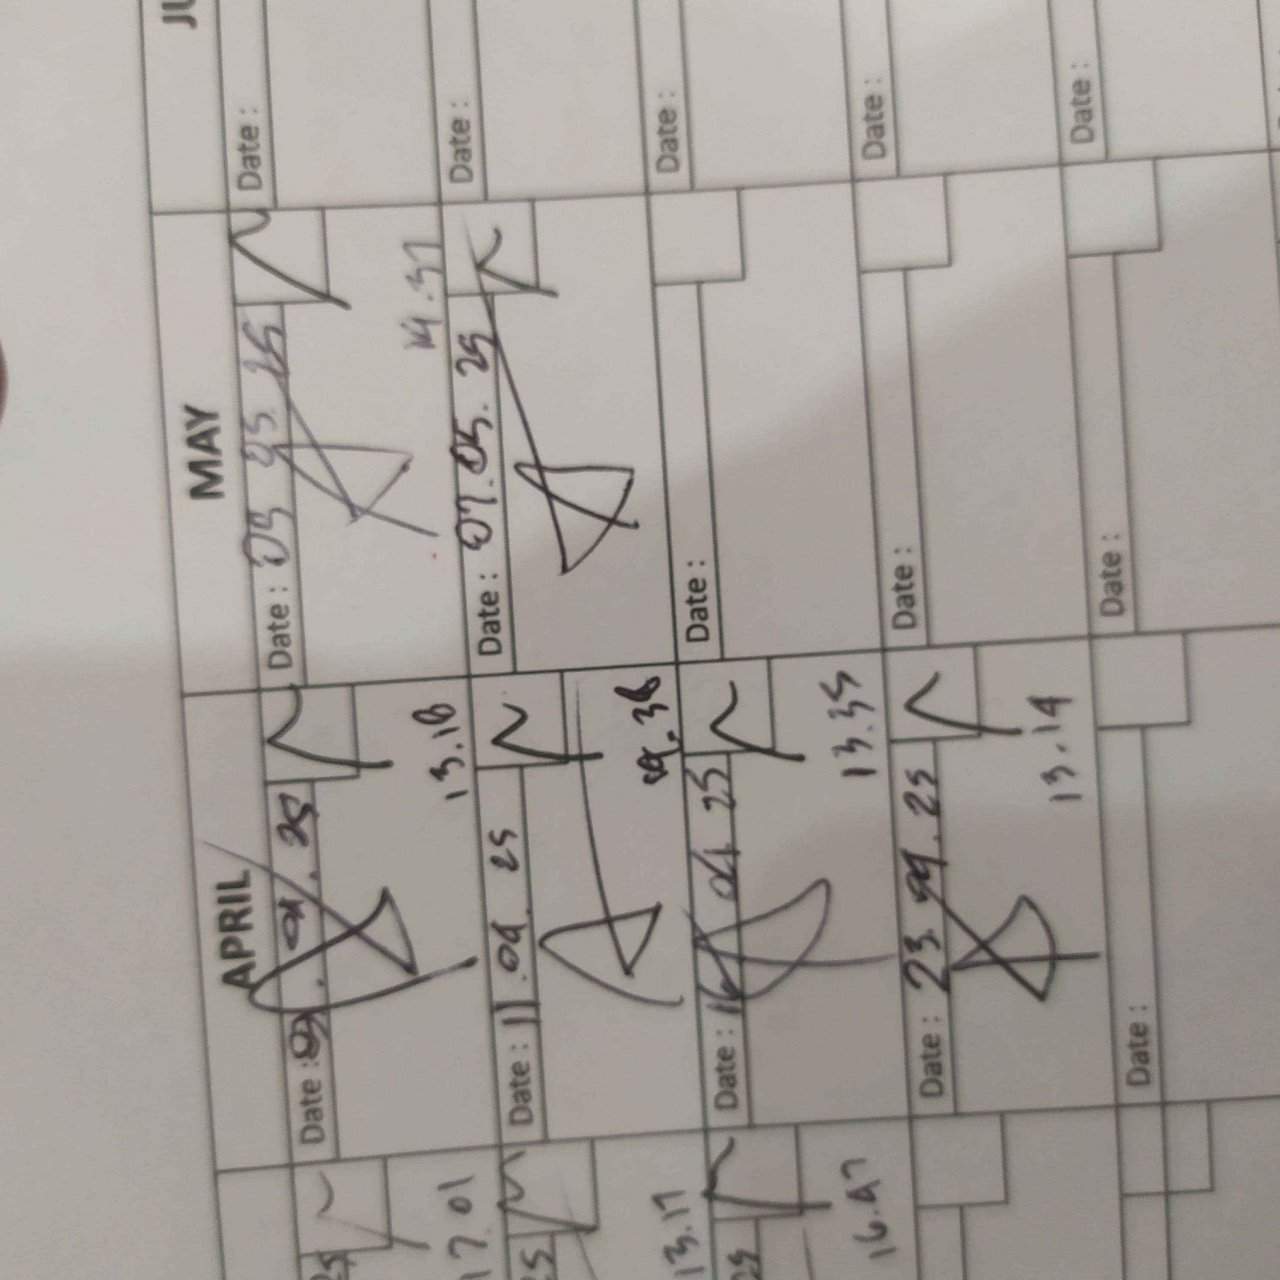 APRIL
MAY
JU
25
Date :
Date : 05 05 25
Date :
17.01
13.18
14.37
25
Date : 11.04.25
Date : 07.05.25
Date :
13.17
14.38
25
Date : 16 04 25
Date :
Date :
16.47
13.35
Date : 23.04.25
Date :
Date :
13.14
Date :
Date :
Date :